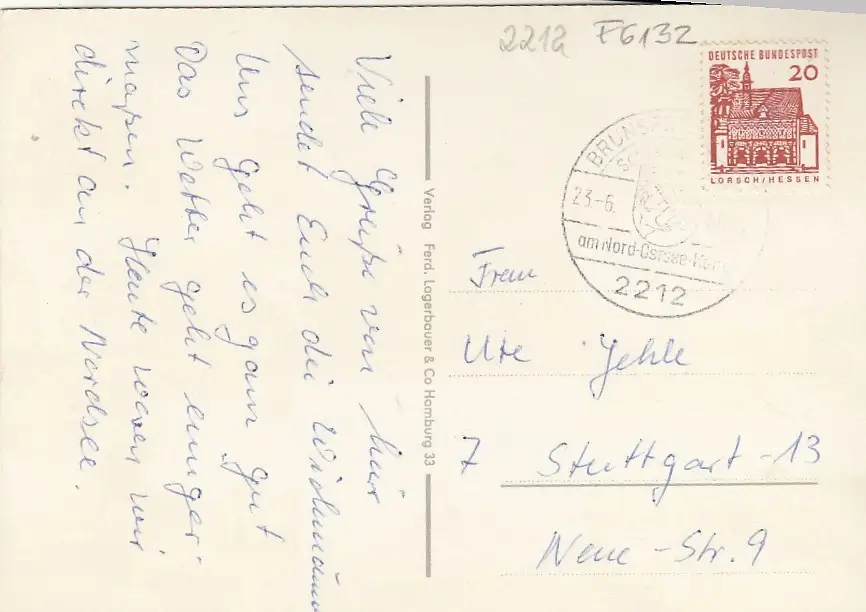 2212 F6132
DEUTSCHE BUNDESPOST
20
LORSCH/HESSEN
23-6.
am Nord-Ostsee-
2212
Viele Grüße von hier
sendet Euch die
Uns geht es ganz gut
Das Wetter geht einiger-
maßen. Heute waren wir
direkt an der Nordsee.
Verlag Ferd. Lagerbauer & Co Hamburg 33
Frau
Ute Jehle
7 Stuttgart-13
Neue-Str. 9